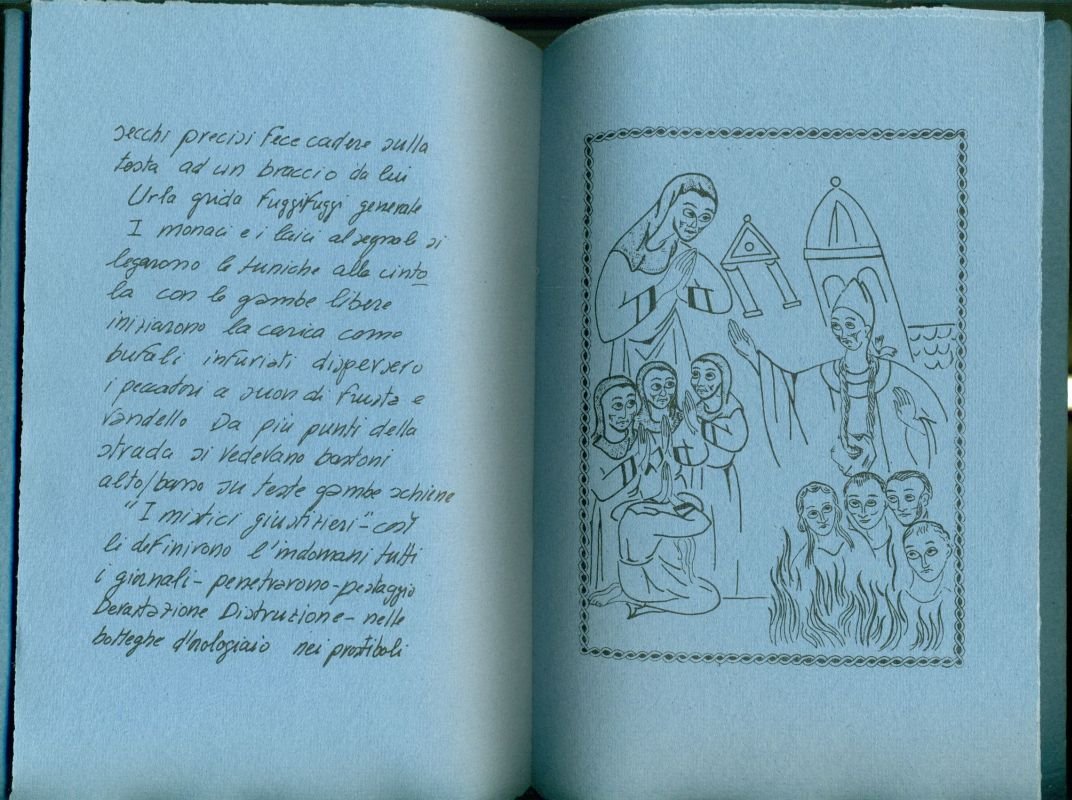 secchi precisi fece cadere sulla
testa ad un braccio da lui
Urla grida fuggifuggi generale
I monaci e i laici al segnale si
legarono le tuniche alla cinto
la con le gambe libere
iniziarono la carica come
bufali infuriati dispersero
i peccatori a suon di frusta e
randello Da più punti della
strada si vedevano bastoni
alto/basso su teste gambe schiene
"I mistici giustizieri" così
li definirono l'indomani tutti
i giornali - penetrarono - pestaggio
Devastazione Distruzione - nelle
botteghe d'orologiaio nei prostiboli